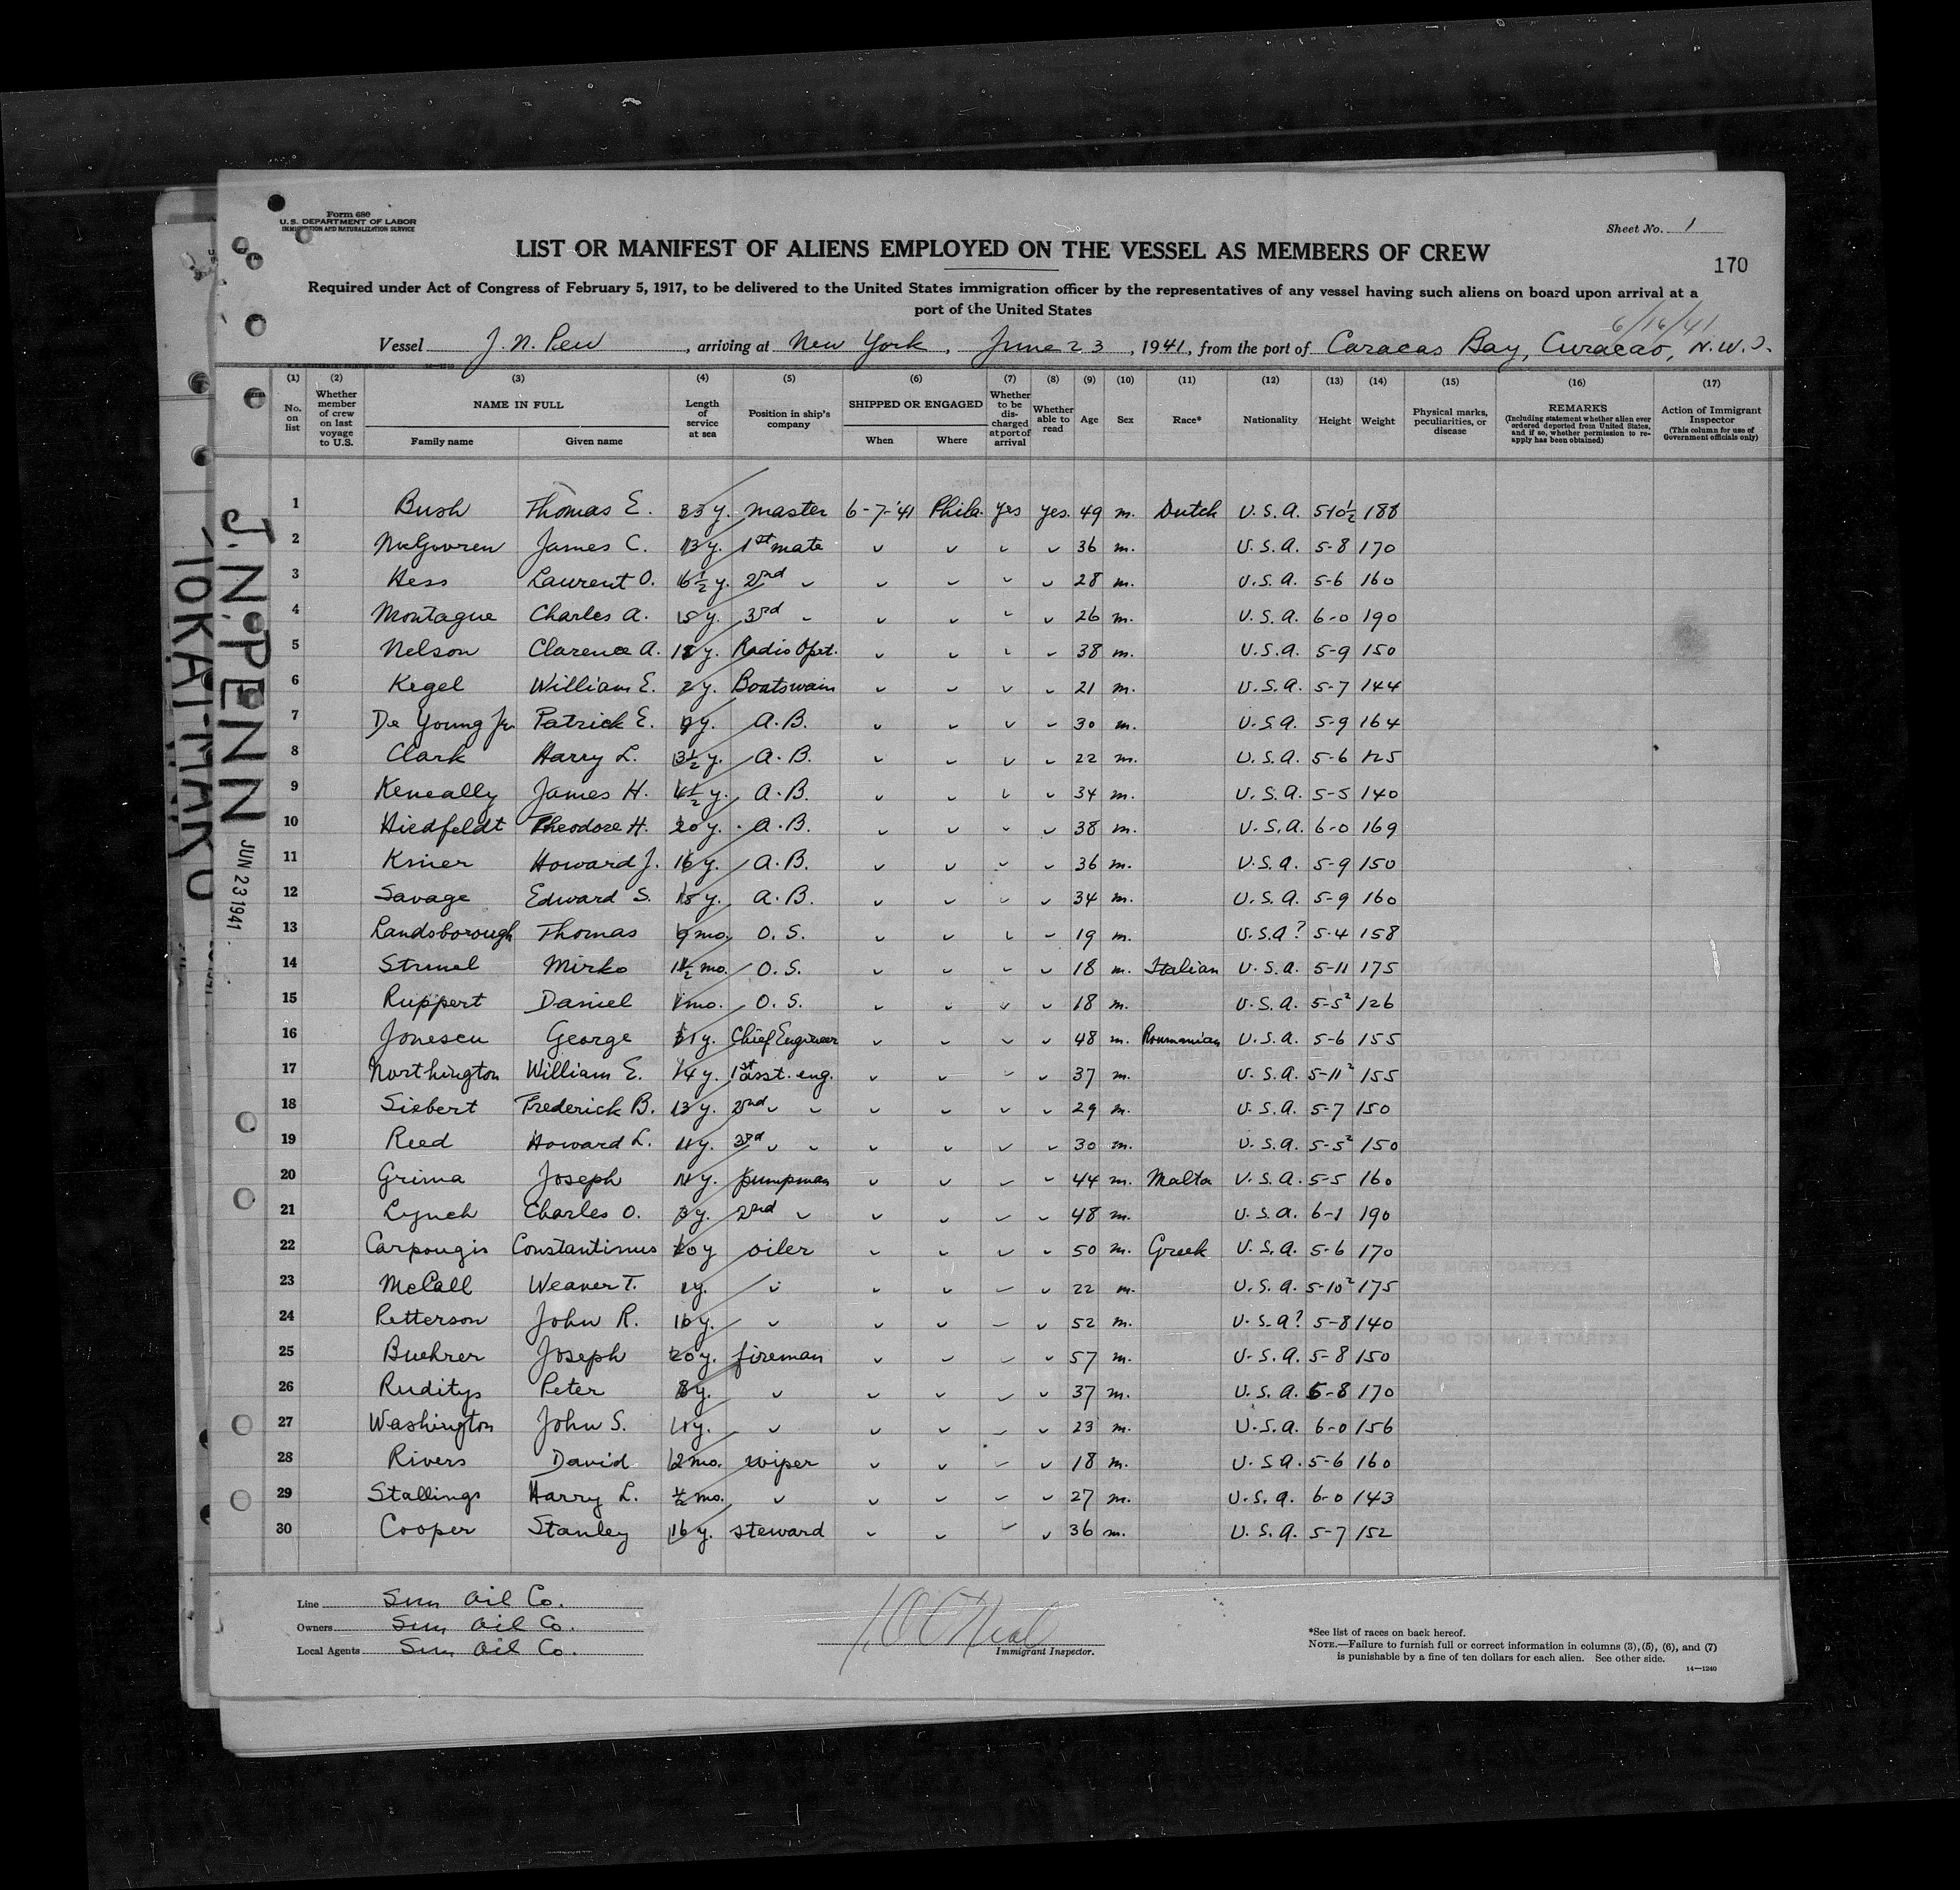 Form 680
U.S. DEPARTMENT OF LABOR
IMMIGRATION AND NATURALIZATION SERVICE
Sheet No. 1
LIST OR MANIFEST OF ALIENS EMPLOYED ON THE VESSEL AS MEMBERS OF CREW
170
Required under Act of Congress of February 5, 1917, to be delivered to the United States immigration officer by the representatives of any vessel having such aliens on board upon arrival at a
port of the United States
6/16/41
Vessel J. N. Pew, arriving at New York, June 23, 1941, from the port of Caracas Bay, Curacao, N.W.I.
(1) (2) (3) (4) (5) (6) (7) (8) (9) (10) (11) (12) (13) (14) (15) (16) (17)
No. on list
Whether member of crew on last voyage to U.S.
NAME IN FULL
Family name
Given name
Length of service at sea
Position in ship's company
SHIPPED OR ENGAGED
When
Where
Whether to be discharged at port of arrival
Whether able to read
Age
Sex
Race*
Nationality
Height
Weight
Physical marks, peculiarities, or disease
REMARKS
(Including statement whether alien ever ordered deported from United States, and if so, whether permission to re-apply has been obtained)
Action of Immigrant Inspector
(This column for use of Government officials only)
1 Bush Thomas E. 33 y. master 6-7-'41 Phila. yes yes. 49 m. Dutch U.S.A. 5-10½ 188
2 McGovren James C. 13 y. 1st mate ✓ ✓ ✓ ✓ 36 m. U.S.A. 5-8 170
3 Hess Laurent O. 6½ y. 2nd ✓ ✓ ✓ ✓ ✓ 28 m. U.S.A. 5-6 160
4 Montague Charles A. 15 y. 3rd ✓ ✓ ✓ ✓ ✓ 26 m. U.S.A. 6-0 190
5 Nelson Clarence A. 18 y. Radio Opst. ✓ ✓ ✓ ✓ 38 m. U.S.A. 5-9 150
6 Kegel William E. 2 y. Boatswain ✓ ✓ ✓ ✓ 21 m. U.S.A. 5-7 144
7 De Young Jr. Patrick E. 9 y. A.B. ✓ ✓ ✓ ✓ 30 m. U.S.A. 5-9 164
8 Clark Harry L. 3½ y. A.B. ✓ ✓ ✓ ✓ 22 m. U.S.A. 5-6 125
9 Keneally James H. 4½ y. A.B. ✓ ✓ ✓ ✓ 34 m. U.S.A. 5-5 140
10 Hiedfeldt Theodore H. 20 y. A.B. ✓ ✓ ✓ ✓ 38 m. U.S.A. 6-0 169
11 Kriner Howard J. 16 y. A.B. ✓ ✓ ✓ ✓ 36 m. U.S.A. 5-9 150
12 Savage Edward S. 15 y. A.B. ✓ ✓ ✓ ✓ 34 m. U.S.A. 5-9 160
13 Landsborough Thomas 9 mo. O.S. ✓ ✓ ✓ ✓ 19 m. U.S.A? 5-4 158
14 Strunel Mirko 1½ mo. O.S. ✓ ✓ ✓ ✓ 18 m. Italian U.S.A. 5-11 175
15 Ruppert Daniel 1 mo. O.S. ✓ ✓ ✓ ✓ 18 m. U.S.A. 5-5² 126
16 Jonescu George 31 y. Chief Engineer ✓ ✓ ✓ ✓ 48 m. Roumanian U.S.A. 5-6 155
17 Northington William E. 14 y. 1st asst. eng. ✓ ✓ ✓ ✓ 37 m. U.S.A. 5-11² 155
18 Siebert Frederick B. 13 y. 2nd ✓ ✓ ✓ ✓ ✓ ✓ 29 m. U.S.A. 5-7 150
19 Reed Howard L. 11 y. 3rd ✓ ✓ ✓ ✓ ✓ ✓ 30 m. U.S.A. 5-5² 150
20 Grima Joseph 11 y. pumpman ✓ ✓ ✓ ✓ 44 m. Malta U.S.A. 5-5 160
21 Lynch Charles O. 3 y. 2nd ✓ ✓ ✓ ✓ ✓ 48 m. U.S.A. 6-1 190
22 Carpougis Constantinus 20 y oiler ✓ ✓ ✓ ✓ 50 m. Greek U.S.A. 5-6 170
23 McCall Weaver T. 1 y. ✓ ✓ ✓ ✓ ✓ 22 m. U.S.A. 5-10² 175
24 Petterson John R. 16 y. ✓ ✓ ✓ ✓ ✓ 52 m. U.S.A? 5-8 140
25 Buehrer Joseph 20 y. fireman ✓ ✓ ✓ ✓ 57 m. U.S.A. 5-8 150
26 Ruditys Peter 8 y. ✓ ✓ ✓ ✓ ✓ 37 m. U.S.A. 5-8 170
27 Washington John S. 1 y. ✓ ✓ ✓ ✓ ✓ 23 m. U.S.A. 6-0 156
28 Rivers David 2 mo. wiper ✓ ✓ ✓ ✓ 18 m. U.S.A. 5-6 160
29 Stallings Harry L. ½ mo. ✓ ✓ ✓ ✓ ✓ 27 m. U.S.A. 6-0 143
30 Cooper Stanley 16 y. steward ✓ ✓ ✓ ✓ 36 m. U.S.A. 5-7 152
Line Sun Oil Co.
Owners Sun Oil Co.
Local Agents Sun Oil Co.
Immigrant Inspector.
*See list of races on back hereof.
NOTE.—Failure to furnish full or correct information in columns (3), (5), (6), and (7)
is punishable by a fine of ten dollars for each alien. See other side.
14—1240
J. N. PENN
JUN 23 1941
TOKAI MARU